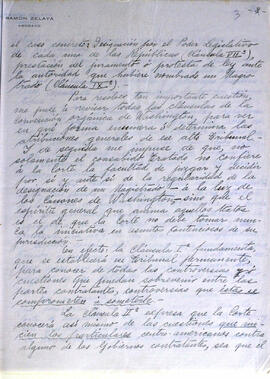 RAMÓN ZELAYA
ABOGADO
3 -8-
el caso concreto: Designación por el Poder legislativo
de cada una de las Repúblicas (cláusula VIIª),
prestación del juramento ó protesta de ley ante
la autoridad que hubiere nombrado un Magis-
trado (cláusula IXª).
Para resolver tan importante cuestión
me puse á revisar todas las cláusulas de la
convención orgánica de Washington, para ver
en qué forma enuncia y determina las
atribuciones generales de este Tribunal.
Y en seguida me impuse de que, no
solamente el consabido tratado no confiere
á la Corte la facultad de juzgar y decidir
por sí y ante sí de la regularidad de la
designación de un Magistrado, á la luz de
los cánones de Washington, sino que el
espíritu general que anima aquellos textos
es el de que la Corte no debe tomar nun-
ca la iniciativa en asunto contencioso de su
jurisdicción.
En efecto: la cláusula Iª fundamental,
que se establecerá un tribunal permanente,
para conocer de todas las controversias ó
cuestiones que puedan sobrevenir entre las
partes contratantes, controversias que éstas se
comprometen á someterle.
La cláusula IIª expresa que la Corte
conocerá así mismo de las cuestiones que ini-
cien los particulares centro-americanos contra
alguno de los Gobiernos contratantes, sea que el